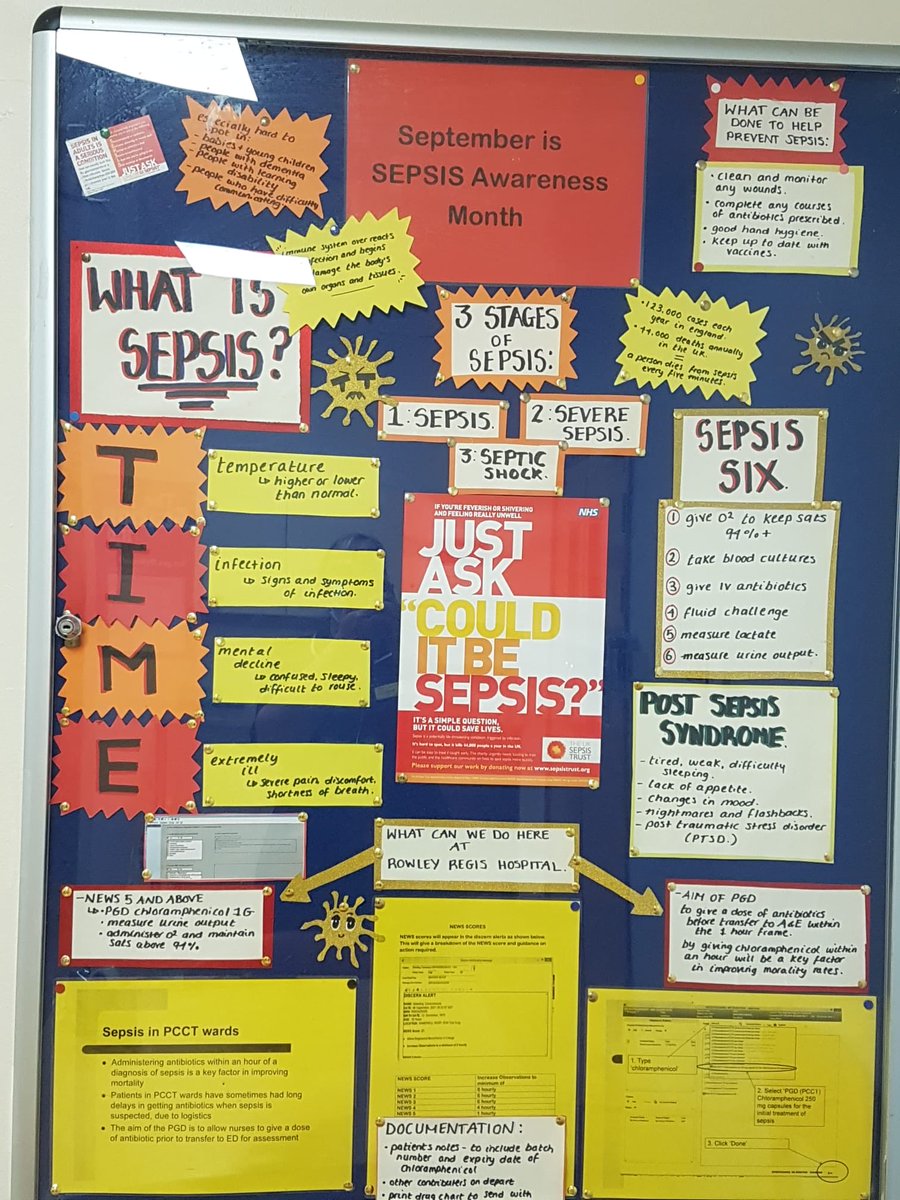 SEPSIS IN
ADULTS IS
A SERIOUS
CONDITION
JUST ASK
especially hard to
spot in:
- babies + young children
- people with dementia
- people with learning
disability
- people who have difficulty
communicating.
September is
SEPSIS Awareness
Month
WHAT CAN BE
DONE TO HELP
PREVENT SEPSIS:
• clean and monitor
any wounds.
• complete any courses
of antibiotics prescribed.
• good hand hygiene.
• keep up to date with
vaccines.
immune system over reacts
infection and begins
damage the body's
own organs and tissues.
WHAT IS
SEPSIS?
3 STAGES
OF
SEPSIS:
• 123,000 cases each
year in england.
• 44,000 deaths annually
in the UK.
=
a person dies from sepsis
every five minutes.
1: SEPSIS.
2: SEVERE
SEPSIS.
3: SEPTIC
SHOCK.
SEPSIS
SIX.
① give O² to keep sats
94%+
② take blood cultures
③ give IV antibiotics
④ fluid challenge
⑤ measure lactate
⑥ measure urine output.
T
temperature
↳ higher or lower
than normal.
I
infection
↳ signs and symptoms
of infection.
M
mental
decline
↳ confused, sleepy,
difficult to rouse.
E
extremely
ill
↳ severe pain, discomfort,
shortness of breath.
IF YOU'RE FEVERISH OR SHIVERING
AND FEELING REALLY UNWELL
NHS
JUST
ASK
"COULD
IT BE
SEPSIS?"
IT'S A SIMPLE QUESTION,
BUT IT COULD SAVE LIVES.
THE UK
SEPSIS
TRUST
Please support our work by donating now at www.sepsistrust.org
POST SEPSIS
SYNDROME.
- tired, weak, difficulty
sleeping.
- lack of appetite.
- changes in mood.
- nightmares and flashbacks.
- post traumatic stress disorder
(PTSD.)
WHAT CAN WE DO HERE
AT
ROWLEY REGIS HOSPITAL.
- NEWS 5 AND ABOVE
↳ PGD chloramphenicol 1G
• measure urine output
• administer O² and maintain
sats above 94%
- AIM OF PGD
to give a dose of antibiotics
before transfer to A&E within
the 1 hour frame.
by giving chloramphenicol within
an hour will be a key factor
in improving morality rates.
Sepsis in PCCT wards
• Administering antibiotics within an hour of a
diagnosis of sepsis is a key factor in improving
mortality
• Patients in PCCT wards have sometimes had long
delays in getting antibiotics when sepsis is
suspected, due to logistics
• The aim of the PGD is to allow nurses to give a dose
of antibiotic prior to transfer to ED for assessment
NEWS SCORES
NEWS scores will appear in the discern alerts as shown below.
This will give a breakdown of the NEWS score and guidance on
action required.
DISCERN ALERT
NEWS SCORE Increase Observations to
minimum of
NEWS 1
NEWS 2
NEWS 3
NEWS 4
NEWS 5
1. Type
'chloramphenicol'
2. Select 'PGD (PCCT)
Chloramphenicol 250
mg capsules for the
initial treatment of
sepsis
3. Click 'Done'
DOCUMENTATION:
• patients notes - to include batch
number and expiry date of
chloramphenicol
• other contributers on depart
• print drug chart to send with